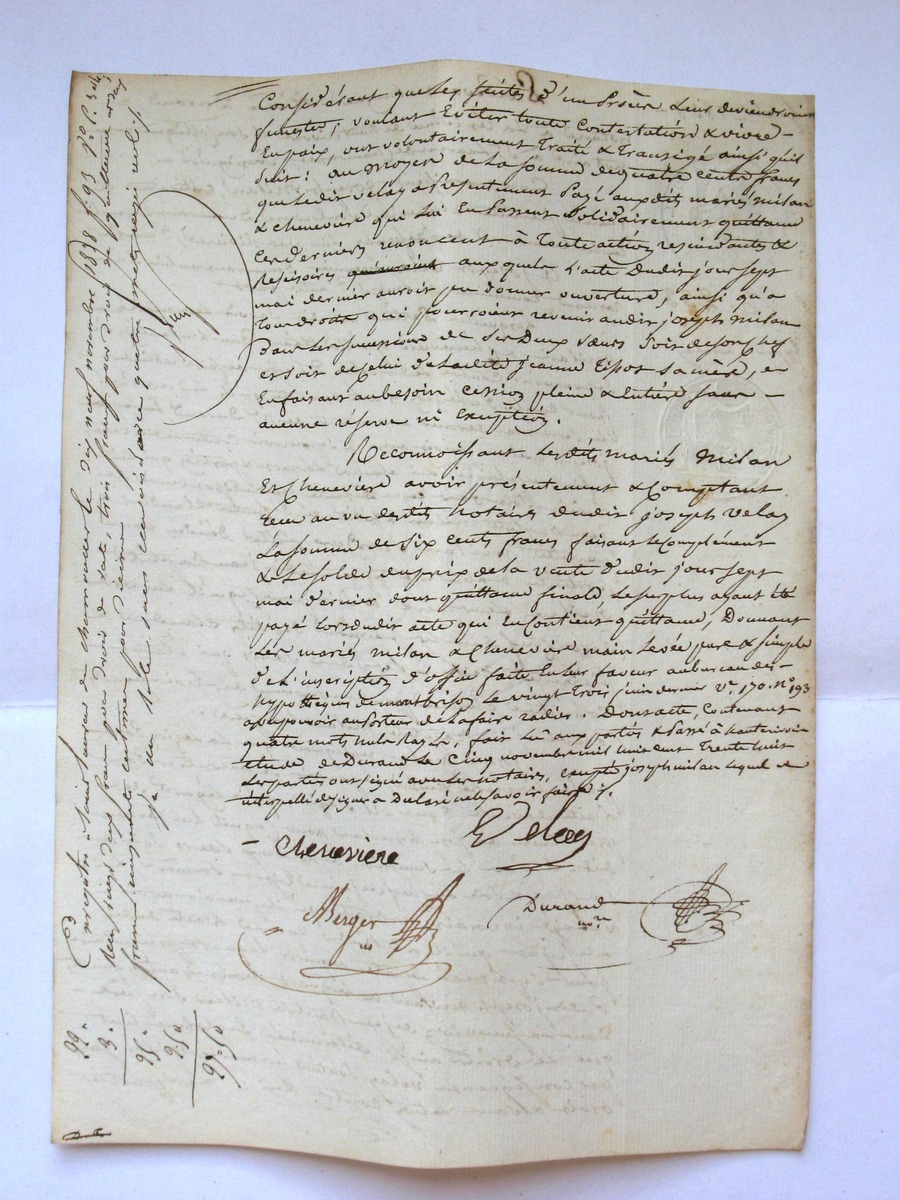 Considérant que les suites d'un Procès leur deviendroient
funestes ; voulant Eviter toute Contestation & vivre -
En paix, ont volontairement Traité & Transigé ainsi qu'il
suit : au moyen de la somme de quatre cents francs
que ledit velay a Présentement Payé auxdits mariés milan
& chenevière qui lui En Passent Solidairement quittance
Ces derniers renoncent à Toute action rescindante &
Rescisoire auxquels l'acte dudit jour sept
mai dernier auroit pu donner ouverture, ainsi qu'a
Tous droits qui pourroient revenir audit joseph milan
Dans les successions de ses Deux Sœurs soit de son chef
et soit de Celui de ladite jeanne Tissot sa mère, en
En faisant au besoin cession pleine & Entière sans -
aucune réserve ni Exception.
Reconnoissant lesdits mariés Milan
Et Chenevière avoir présentement & Comptant
reçu au vu desdits Notaires dudit joseph Velay
La somme de Six cents francs faisant le Complément
& le solde du prix de la vente dudit jour sept
mai dernier dont quittance finale, le surplus ayant été
payé lors dudit acte qui En Contient quittance, Donnant
Les mariés milan & Chenevière main levée pure & simple
de L'inscription d'office faite En leur faveur au bureau des -
hypothèques de montbrison le vingt trois juin dernier vol. 170. N° 193
avec pouvoir au Porteur de la faire radier. Dont acte, Contenant
quatre mots nuls Rayés, fait Lu aux parties & Passé à
Etude de Durand Le Cinq novembre mil huit cent Trente huit
Les parties ont signé avec les notaires, Excepté joseph milan lequel de
interpellé de signer a Déclaré ne le savoir faire ./.
- Chenevière
Velay
Berger
nre
Durand
nre
Enregistré à Saint le dix neuf novembre 1838 f. 93 Ro C. 3 &
reçu deux francs pour droit de
francs cinquante centimes pour décime
un mot rayé nul ./.
92 "
3 "
95 "
9.50